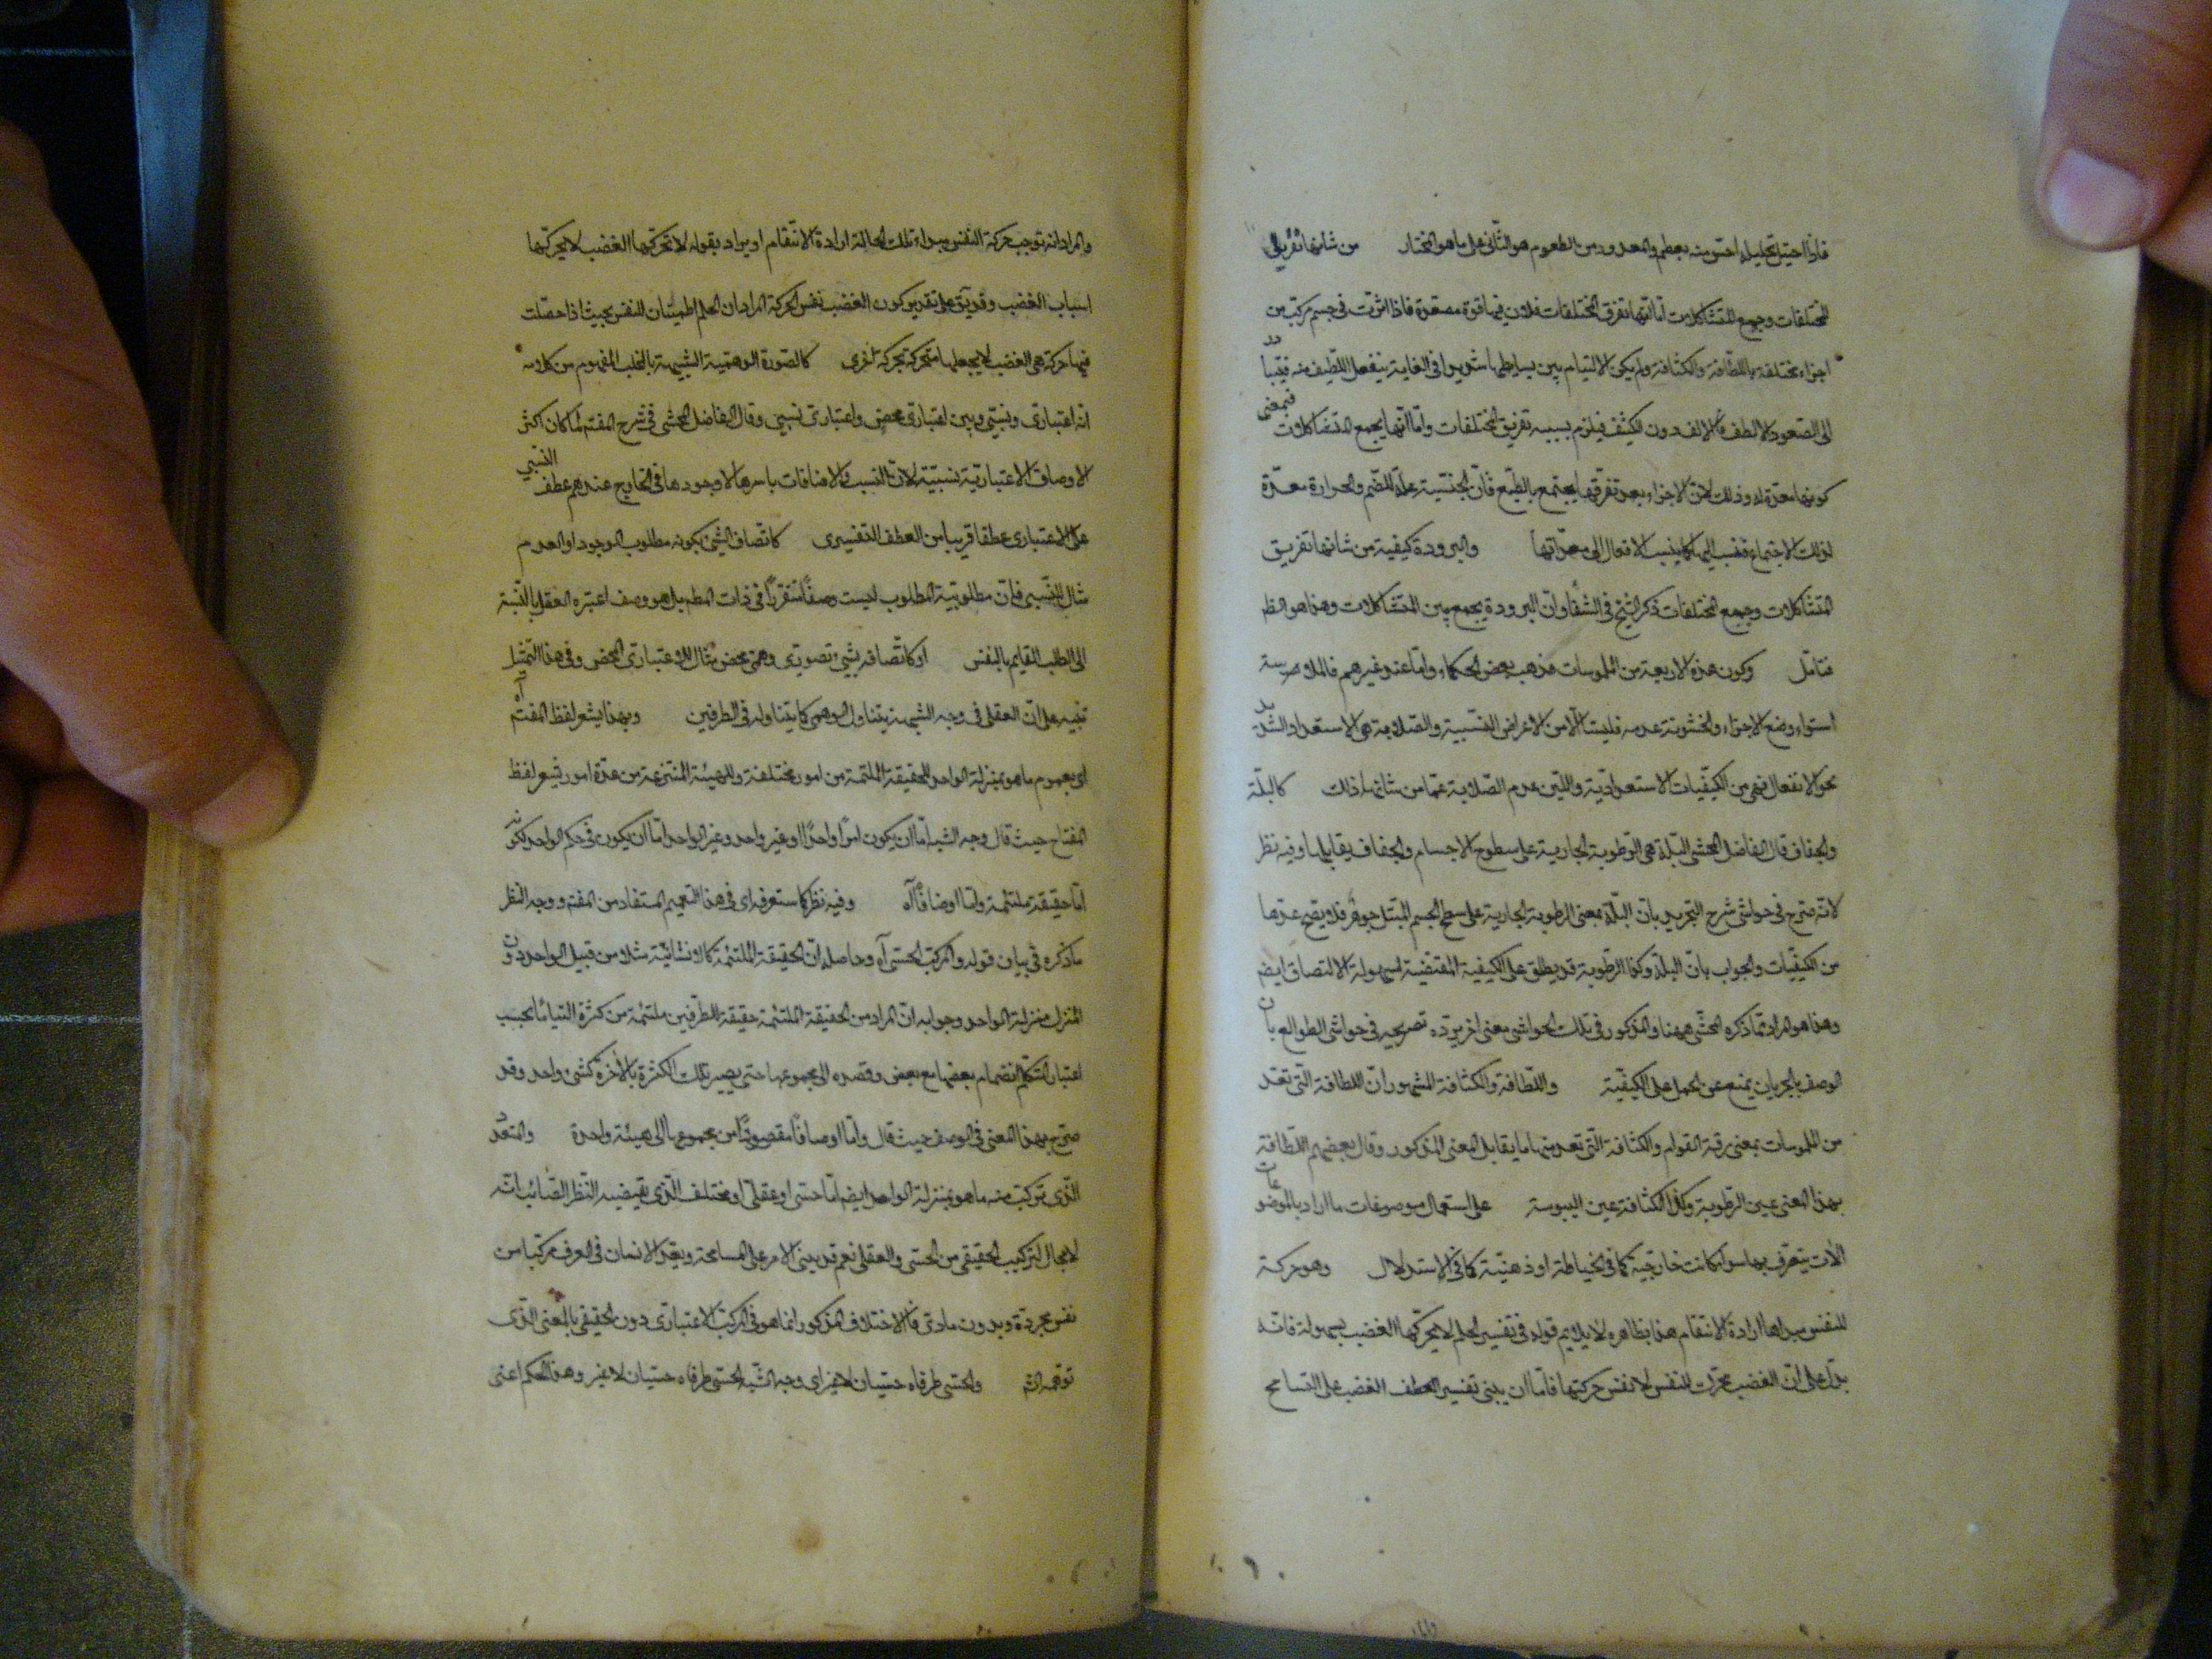 فاذا احتيل تحليله احس منه بطعم والمعدود من الطعوم هو الثاني على ما هو المختار من شانها تفريق
المختلفات وجمع المتشاكلات اما انها تفرق المختلفات فلان فيها قوة مصعدة فاذا اثرت في جسم مركب من
اجزاء مختلفة باللطافة والكثافة ولم يكن الالتيام بين بسايطها شديدا في الغاية ينفعل اللطيف منه
الى الصعود الالطف فالالطف دون الكثيف فيلزم بسببه تفريق المختلفات واما انها يجمع المتشاكلات فبمعنى
كونها معدة له وذلك لان الاجزاء بعد تفرقها يجتمع بالطبع فان الجنسية علة للضم والحرارة معدة
لذلك الاجتماع فنسب اليها كما ينسب الافعال الى معداتها والبرودة كيفية من شانها تفريق
المتشاكلات وجمع المختلفات ذكر الشيخ في الشفاء ان البرودة يجمع بين المتشاكلات وهذا هو الظ
فتامل وكون هذه الاربعة من الملموسات مذهب بعض الحكماء واما عند غيرهم فالملاسة
استواء وضع الاجزاء والخشونة عدمه فليستا الا من الاعراض النسبية والصلابة هي الاستعداد الشديد
نحو الانفعال فهي من الكيفيات الاستعدادية واللين عدم الصلابة عما من شانها ذلك كالبلة
والجفاف قال الفاضل المحشي البلة هي الرطوبة الجارية على سطوح الاجسام والجفاف يقابلها وفيه نظر
لانه صرح في حواشي شرح التجريد بان البلة بمعنى الرطوبة الجارية على سطح الجسم المبتل جوهر فلا يصح عدها
من الكيفيات والجواب بان البلة وكذا الرطوبة قد يطلق على الكيفية المقتضية لسهولة الالتصاق ايضم
وهذا هو المراد مما ذكره المحشي ههنا والمذكور في تلك الحواشي معنى اخر يرده تصريحه في حواشي الطوالع بان
الوصف بالجريان يمنع عن الحمل على الكيفية واللطافة والكثافة المشهور ان اللطافة التي تعد
من الملموسات بمعنى رقة القوام والكثافة التي تعد منها ما يقابل المعنى المذكور وقال بعضهم اللطافة
بهذا المعنى عين الرطوبة وكذا الكثافة عين اليبوسة على استعمال موضوعات ما اراد بالموضوعات
الات يتصرف بها سواء كانت خارجية كما في الخياطة او ذهنية كما في الاستدلال وهو حركة
للنفس مبداها ارادة الانتقام هذا بظاهره لا يلايم قوله في تفسير الحلم لا يحركها الغضب بسهولة فانه
يدل على ان الغضب محرك للنفس لا نفس حركتها فاما ان يبنى تفسير الغضب على التسامح
والمراد انه توجب حركة النفس مبداء تلك الحالة ارادة الانتقام او يراد بقوله لا تحركها الغضب لا يحركها
اسباب الغضب وقد يق على تقدير كون الغضب نفس الحركة المراد ان الحلم اطمينان للنفس بحيث اذا حصلت
فيها حركة هي الغضب لا يجعلها متحركة بحركة اخرى كالصورة الوهمية الشبيهة بالمخلب المفهوم من كلامه
انه اعتباري ونسبي وبين اعتباري محض واعتباري نسبي وقال الفاضل المحشي في شرح المفتم لما كان اكثر
الاوصاف الاعتبارية نسبية لان النسب والاضافات باسرها لا وجود لها في الخارج عندهم عطف النسبي
على الاعتباري عطفا قريبا من العطف التفسيري كاتصاف الشيئ بكونه مطلوب الوجود او العدم
مثال للنسبي فان مطلوبية المطلوب ليست وصفا متقررا في ذات المط بل هو وصف اعتبره العقل بالنسبة
الى الطلب القايم بالنفس او كاتصافه بشيئ تصوري وهمي محض مثال للاعتباري المحض وفي هذا التمثيل
تنبيه على ان العقلي في وجه الشبه يتناول الوهمي كما يتناوله في الطرفين وبهذا يشعر لفظ المفتم آه
اي بعموم ما هو بمنزلة الواحد للحقيقة الملتئمة من امور مختلفة وللهيئة المنتزعة من عدة امور يشعر لفظ
المفتاح حيث قال وجه الشبه اما ان يكون امرا واحدا او غير واحد وغير الواحد اما ان يكون في حكم الواحد لكونه
اما حقيقة ملتئمة واما اوصافا آه وفيه نظر كما ستعرفه اي في هذا التعميم المستفاد من المفتم ووجه النظر
ما ذكره في بيان قوله والمركب الحسي آه وحاصله ان الحقيقة الملتئمة كالانسانية مثلا من قبيل الواحد دون
المنزل منزلة الواحد وجوابه ان المراد من الحقيقة الملتئمة حقيقة للطرفين ملتئمة من كثرة التياما بحسب
اعتبار المتكلم انضمام بعضها مع بعض وقصده الى مجموعها حتى يصير تلك الكثرة بالاخرة كشئ واحد وقد
صرح بهذا المعنى في الوصف حيث قال واما اوصافا مقصودا من مجموعها الى هيئة واحدة والمتعدد
الذي تركب منه ما هو بمنزلة الواحد ايضم اما حسي او عقلي او مختلف الذي يقتضيه النظر الصائب انه
لا مجال لتركيب الحقيقي من الحسي والعقلي نعم قد يبنى الامر على المسامحة ويعد الانسان في العرف مركبا من
نفس مجردة وبدن مادي فالاختلاف المذكور انما هو في المركب الاعتباري دون الحقيقي بالمعنى الذي
توهمه الشم والحسي طرفاه حسيان لا غير اي وجه الشبه الحسي طرفاه حسيان لا غير وهذا الحكم اعني